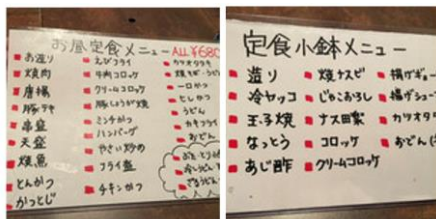 お昼定食メニュー ALL ¥680
お造り
焼肉
唐揚
豚テキ
串盛
天盛
焼魚
とんかつ
かつとじ
えびフライ
牛肉コロッケ
クリームコロッケ
豚しょうが焼
ミンチかつ
ハンバーグ
やさい炒め
フライ盛
チキンかつ
カツオタタキ
一口かつ
としかつ
うどん
カキフライ
おでん
ざるうどん
定食小鉢メニュー
造り
冷ヤッコ
玉子焼
なっとう
あじ酢
焼ナスビ
じゃこおろし
ナス田楽
コロッケ
クリームコロッケ
揚げギョー
揚げシュー
カツオタタ
おでん